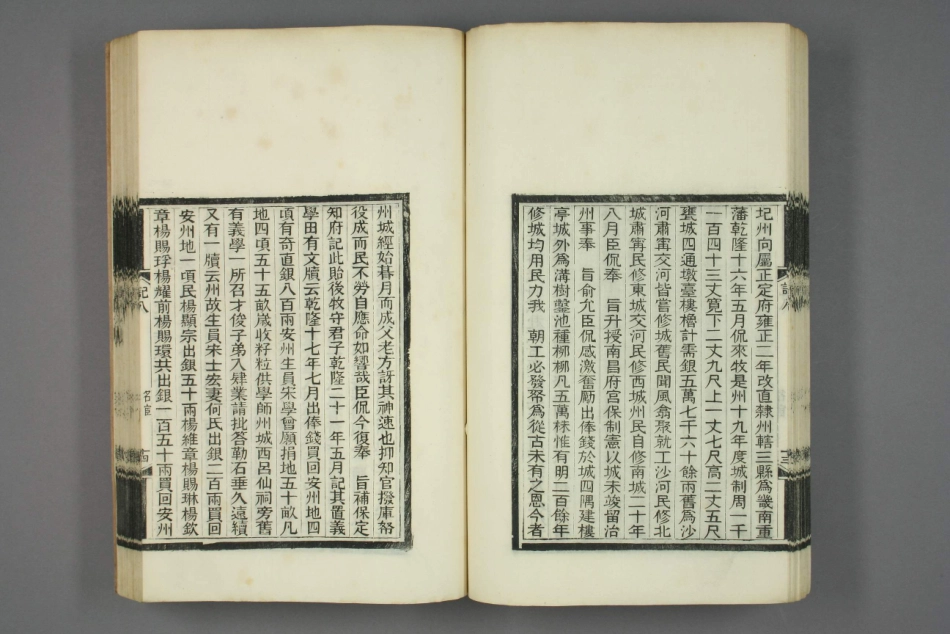 圮州向屬正定府雍正二年改直隸州轄三縣為畿南重
藩乾隆十六年五月侃來牧是州十九年度城制周一千
一百四十三丈寬下二丈九尺上一丈七尺高二丈五尺
甕城四通墩臺樓櫓計需銀五萬七千六十餘兩舊為沙
河肅甯交河皆嘗修城舊民聞風翕聚就工沙河民修北
城肅甯民修東城交河民修西城州民自修南城二十年
八月臣侃奉 旨升授南昌府宮保制憲以城未竣留治
州事奉 旨俞允臣侃感激奮勵出俸錢於城四隅建樓
亭城外為溝樹鑿池種柳柳凡五萬株惟有明二百餘年
修城均用民力我 朝工必發帑為從古未有之恩今者
州城經始碁月而成父老方訝其神速也抑知官撥庫帑
役成而民不勞自應命如響哉臣侃今復奉 旨補保定
知府記此貽後牧守君子乾隆二十一年五月記其置義
學田有文牘云乾隆十七年七月出俸錢買回安州地四
頃有奇直銀八百兩安州生員宋學曾願捐地五十畝凡
地四頃五十五畝歲收籽粒供學師州城西呂仙祠旁舊
有義學一所召才俊子弟入肄業請批荅勒石垂久遠續
又有一牘云州故生員宋士安妻何氏出銀二百兩買回
安州地一頃民楊顯宗出銀五十兩楊維章楊賜琳楊欽
章楊賜琈楊耀前楊賜環共出銀一百五十兩買回安州
記八
名宦